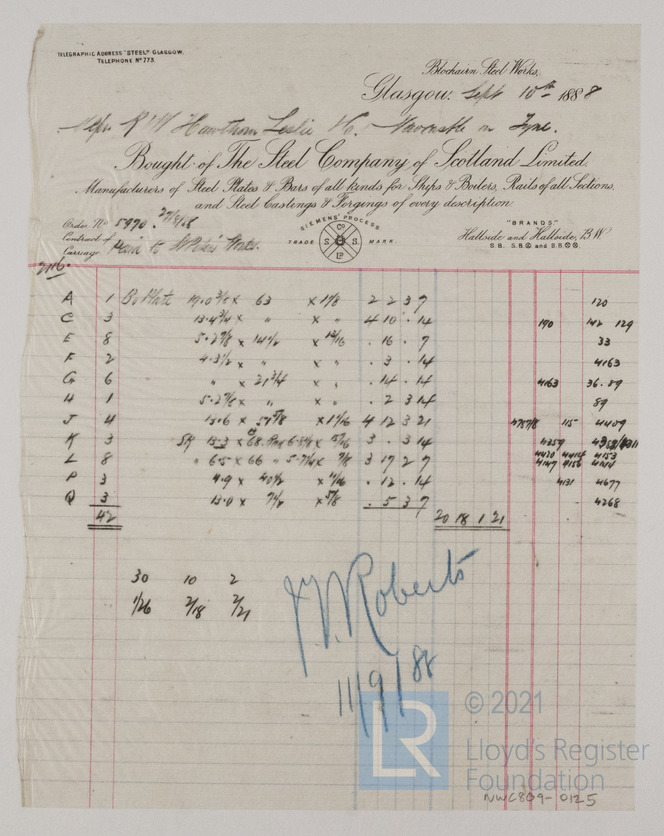 TELEGRAPHIC ADDRESS "STEEL" GLASGOW.
TELEPHONE Nº 773.
Blochairn Steel Works,
Glasgow. Sept 10th 1888
Messrs R & W Hawthorn Leslie & Co. Newcastle on Tyne.
Bought of The Steel Company of Scotland Limited,
Manufacturers of Steel Plates & Bars of all kinds for Ships & Boilers, Rails of all Sections,
and Steel Castings & Forgings of every description.
Order Nº 5970.
Contract of
Carriage
SIEMENS' PROCESS
Cº
S S
Lº
TRADE MARK.
"BRANDS."
Hallside and Hallside, B.W.
S.B. S.B. and S.B.
A 1 Bo Plate 19.0 3/8 x 63 x 1 1/8 2 2 3 7 120
C 3 13.4 3/4 x " x " 4 10 . 14 190 142 129
E 8 5.2 7/8 x 14 1/2 x 13/16 . 16 . 7 33
F 2 4.3 1/2 x " x " . 3 . 14 4163
G 6 " x 21 3/4 x " . 14 . 14 4163 36.89
H 1 5.2 7/8 x " x " . 2 3 14 89
J 4 13.6 x 57 5/8 x 1 1/16 4 12 3 21 115 4409
K 3 SK 13.3 x 68 x 15/16 3 . 3 14 4359
L 8 " 6.5 x 66 x 7/8 3 19 2 7 4420 4414 4153
4147 4156
P 3 4.9 x 40 1/2 x 11/16 . 12 . 14 4131 4677
Q 3 13.0 x 7 1/2 x 5/8 . 5 3 7 4268
42 20 18 1 21
30 10 2
1/26 2/18 2/21
Roberts
11/9/88
LR
© 2021
Lloyd's Register
Foundation
NWC809-0125